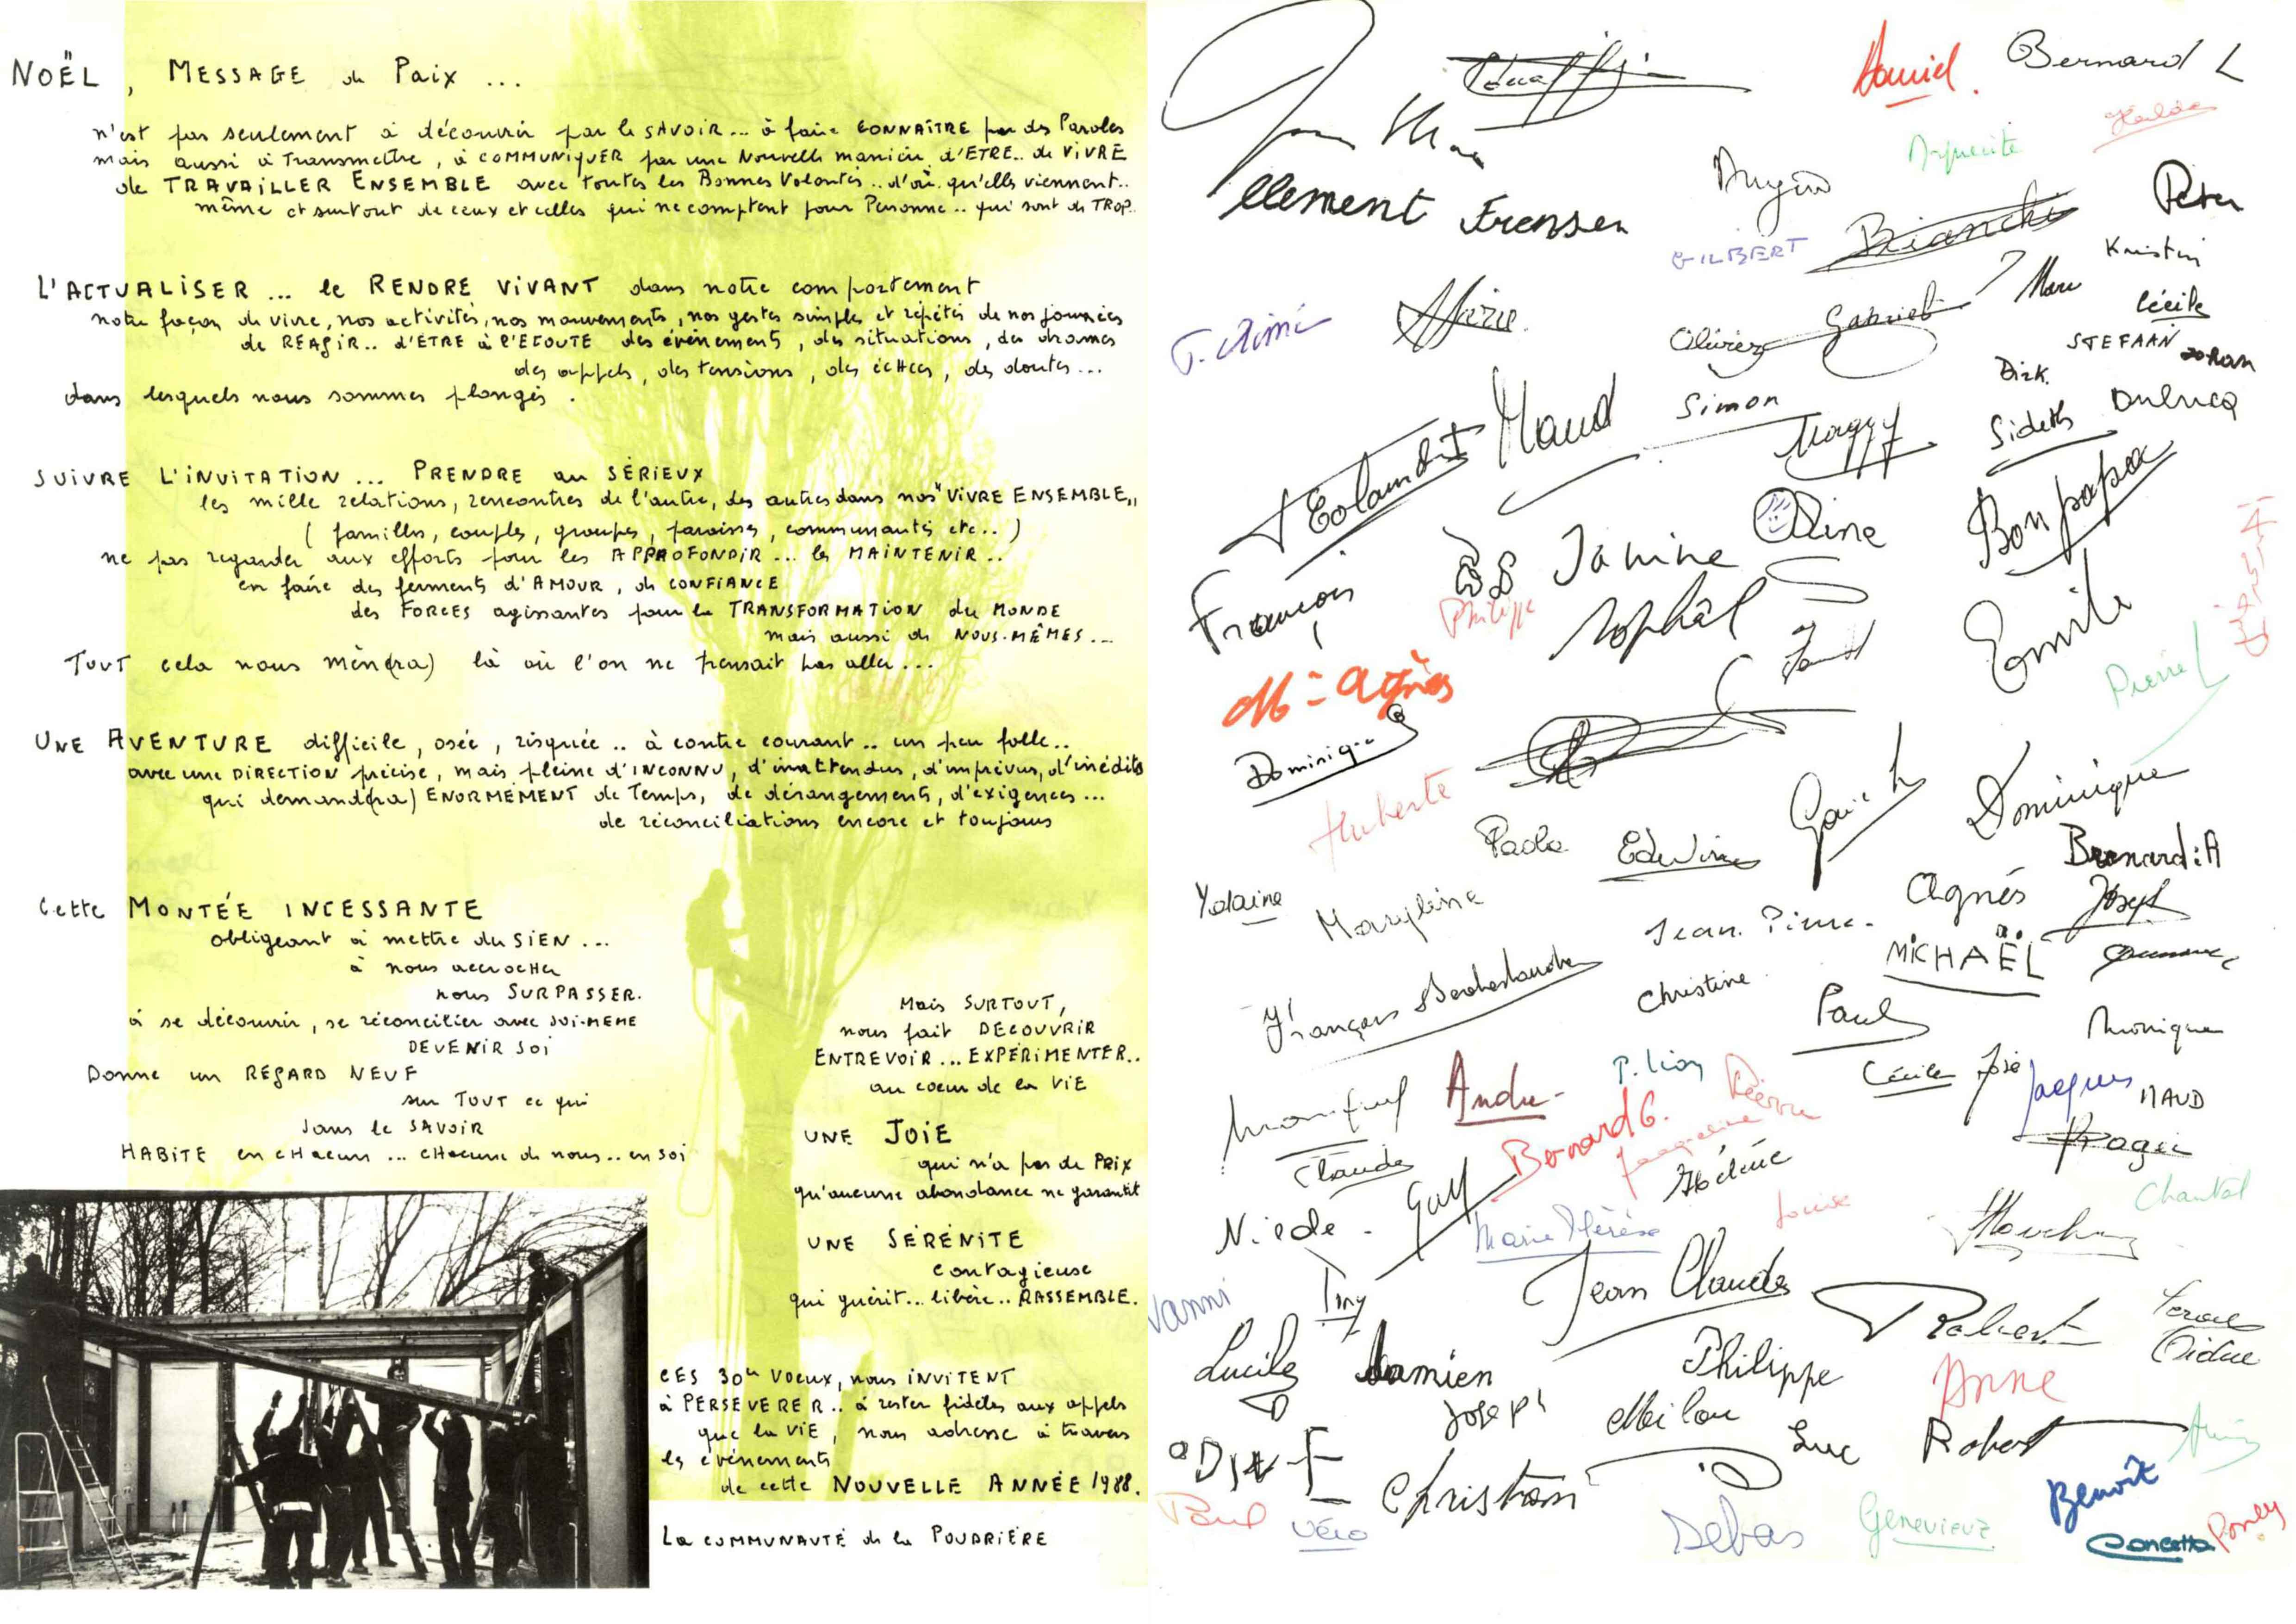 NOËL, MESSAGE de Paix ...
n'est pas seulement à découvrir par le SAVOIR... à faire CONNAÎTRE par des Paroles
mais aussi à Transmettre, à COMMUNIQUER par une Nouvelle manière d'ETRE.. de VIVRE
de TRAVAILLER ENSEMBLE avec toutes les Bonnes Volontés.. d'où qu'elles viennent..
même et surtout de ceux et celles qui ne comptent pour Personne.. qui sont de TROP..
L'ACTUALISER ... le RENDRE VIVANT dans notre comportement
notre façon de vivre, nos activités, nos mouvements, nos gestes simples et répétés de nos journées
de REAGIR.. d'ETRE à l'ECOUTE des événements, des situations, des drames
des appels, des tensions, des écHecs, des doutes...
dans lesquels nous sommes plongés.
SUIVRE L'INVITATION ... PRENDRE au SÉRIEUX
les mille relations, rencontres de l'autre, des autres dans nos "VIVRE ENSEMBLE"
(familles, couples, groupes, paroisses, communautés etc..)
ne pas regarder aux efforts pour les APPROFONDIR ... les MAINTENIR..
en faire des ferments d'AMOUR, de CONFIANCE
des FORCES agissantes pour la TRANSFORMATION du MONDE
mais aussi de NOUS-MÊMES...
TOUT cela nous mèn(era) là où l'on ne pensait pas aller...
UNE AVENTURE difficile, osée, risquée.. à contre courant.. un peu folle..
avec une DIRECTION précise, mais pleine d'INCONNU, d'inattendus, d'imprévus, d'inédits
qui demand(era) ENORMÉMENT de Temps, de dérangements, d'exigences...
de réconciliations encore et toujours
Cette MONTÉE INCESSANTE
obligeant à mettre du SIEN ...
à nous accrocHer
nous SURPASSER.
à se découvrir, se réconcilier avec SOI-MEME
DEVENIR SOI
Donne un REGARD NEUF
sur TOUT ce qui
sans le SAVOIR
HABITE en cHacun ... cHacune de nous.. en soi
Mais SURTOUT,
nous fait DECOUVRIR
ENTREVOIR ... EXPÉRIMENTER..
au coeur de la VIE
UNE JOIE
qui n'a pas de PRIX
qu'aucune abondance ne garantit
UNE SÉRÉNITE
contagieuse
qui guérit... libère.. RASSEMBLE.
CES 30es Voeux, nous INVITENT
à PERSEVERER.. à rester fidèles aux appels
que la VIE, nous adresse à travers
les événements
de cette NOUVELLE ANNÉE 1988.
La COMMUNAUTÉ de la POUDRIÈRE
Daniel. Bernard L
clement Fransen
Peter
GILBERT Bianchi
Kristin
Marc
Cécile
Olivier Gabriel
STEFAAN zoran
Dirk.
Simon
Maud
Maggy Sideth Dulucq
Bonpapa
Janine Aline
François
Philippe
Emile
M = Agnès
Pierre
Dominique
Huberte
Dominique
Paola Edwine
Bernard:A
Yolaine Maryline
Agnés Joseph
Jean-Pierre.
MICHAËL
Christine
François
Paul
Monique
P. Lion
André
Cécile José Jacques MAUD
Bernard G. Jacqueline
Claude
Hélène
Guy
Chantal
Niede - Marie Thérèse Louise
Jean Claude
Vanni Tiny
Robert
Lucile Damien Philippe
Anne
Joseph Milou
Luc Robert
Christian
Benoît
Paul Véro
Debas Geneviève
Concetta